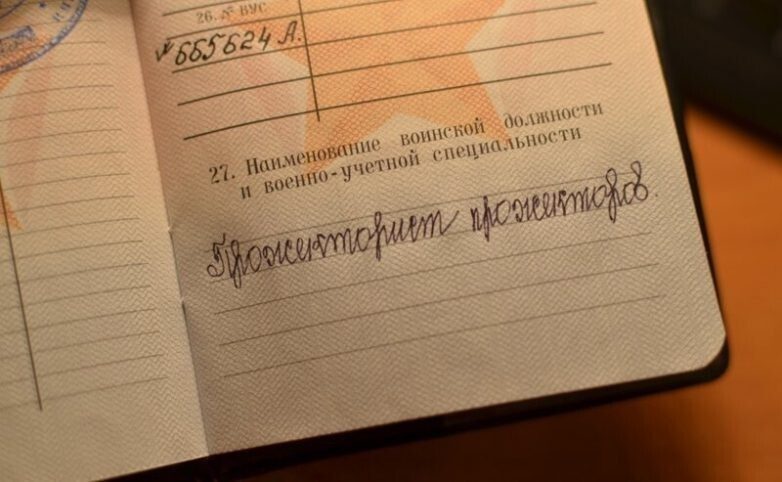 26. № ВУС
№665624 А.
27. Наименование воинской должности
и военно-учетной специальности
Прожекторист прожекторов.